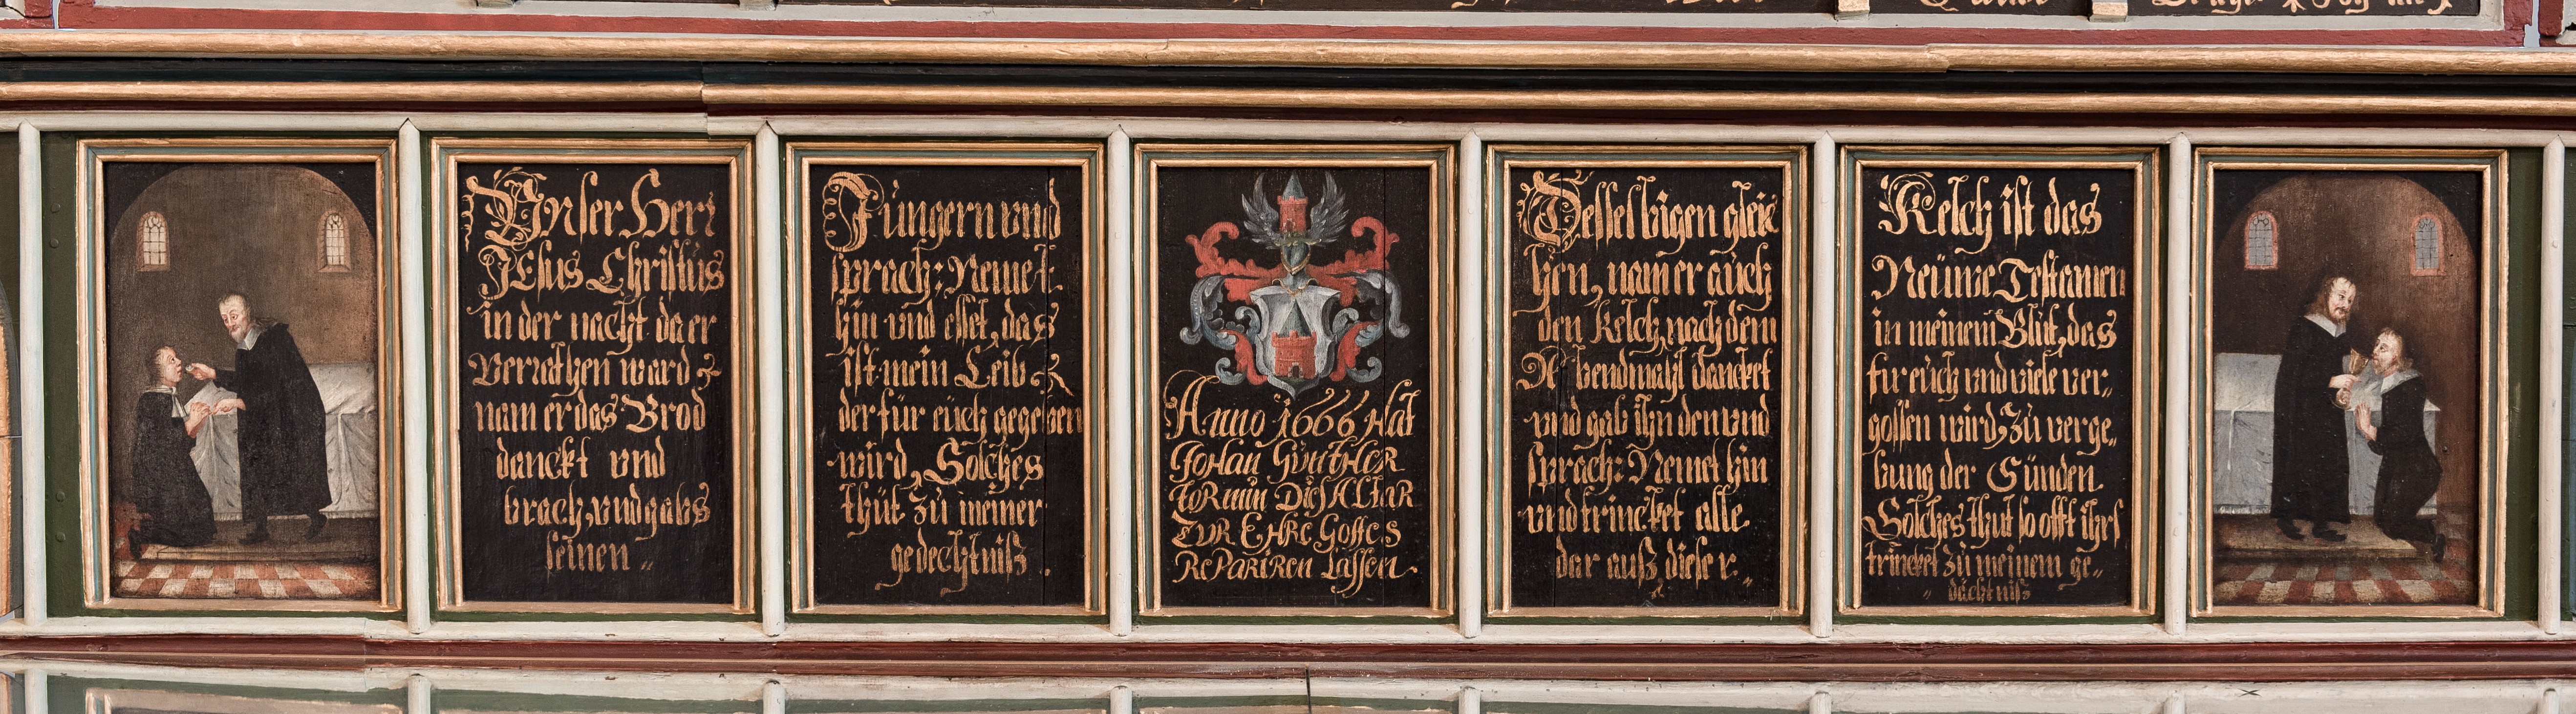 Vnser Herr
JEsus Christüs
in der nacht da er
verrathen ward
nam er das Brod
danckt vnd
brach, vnd gabs
seinen
Jüngern vnd
sprach: Nemet
hin vnd esset, das
ist mein Leib
der für eüch gegeben
wird, Solches
thüt zü meiner
gedechtniß.
Anno 1666 Hat
JoHan GünTHER
DiesALTAR
ZVR EHRE Gottes
RePARiREN Lassen.
Desselbigen gleic
hen, nam er aüch
den Kelch, nach dem
Abendmahl dancket
vnd gab ihn den vnd
sprach: Nemet hin
vnd trincket alle
dar auß, dieser
Kelch ist das
Neüwe Testamen
in meinem Blüt, das
für eüch vnd viele ver„
gossen wird, zü verge„
bung der Sünden
Solches thut so offt ihrs
trincket zü meinem ge„
dächtniß